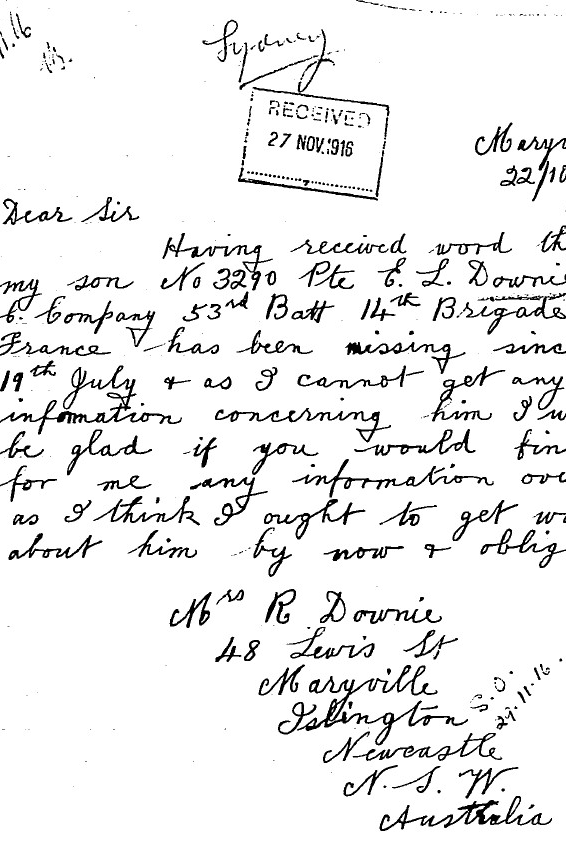 11.16
Sydney
RECEIVED
27 NOV.1916
Maryv
22/10
Dear Sir
Having received word th
my son No 3290 Pte E. L. Downie
C. Company 53rd Batt 14th Brigade
France has been missing sinc
19th July & as I cannot get any
information concerning him I w
be glad if you would fin
for me any information ove
as I think I ought to get wo
about him by now & oblig
Mrs R Downie
48 Lewis St
Maryville
Islington
S.O.
29.11.16.
Newcastle
N. S. W.
Australia